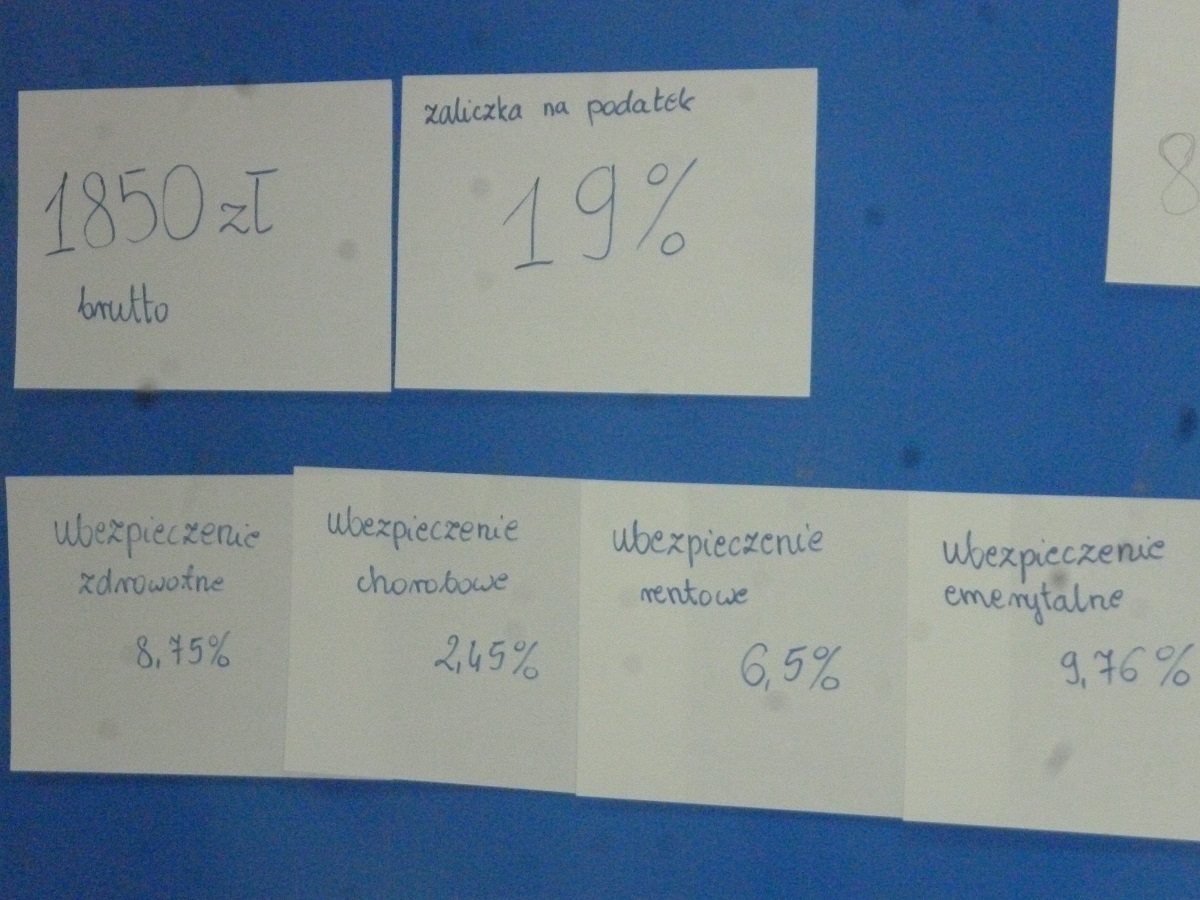 1850 zł
brutto
zaliczka na podatek
19%
8
ubezpieczenie
zdrowotne
8,75%
ubezpieczenie
chorobowe
2,45%
ubezpieczenie
rentowe
6,5%
ubezpieczenie
emerytalne
9,76%